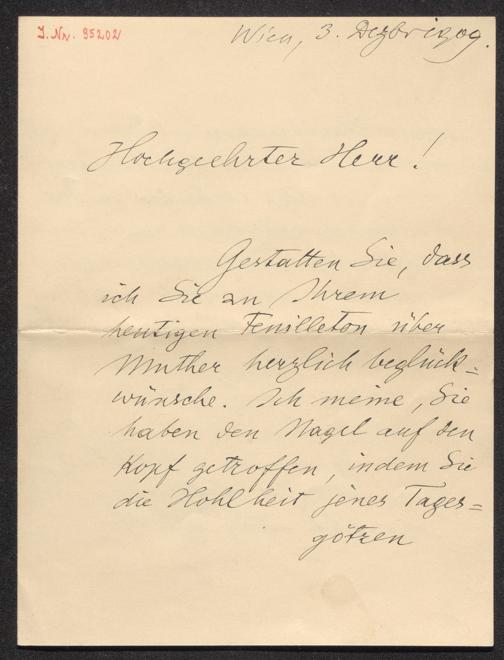 J.Nr. 95202
Wien, 3. Dezbr 1909.
Hochgeehrter Herr!
Gestatten Sie, dass
ich Sie zu Ihrem
heutigen Feuilleton über
Muther herzlich beglück=
wünsche. Ich meine, Sie
haben den Nagel auf den
Kopf getroffen, indem Sie
die Hohlheit jenes Tages=
götzen